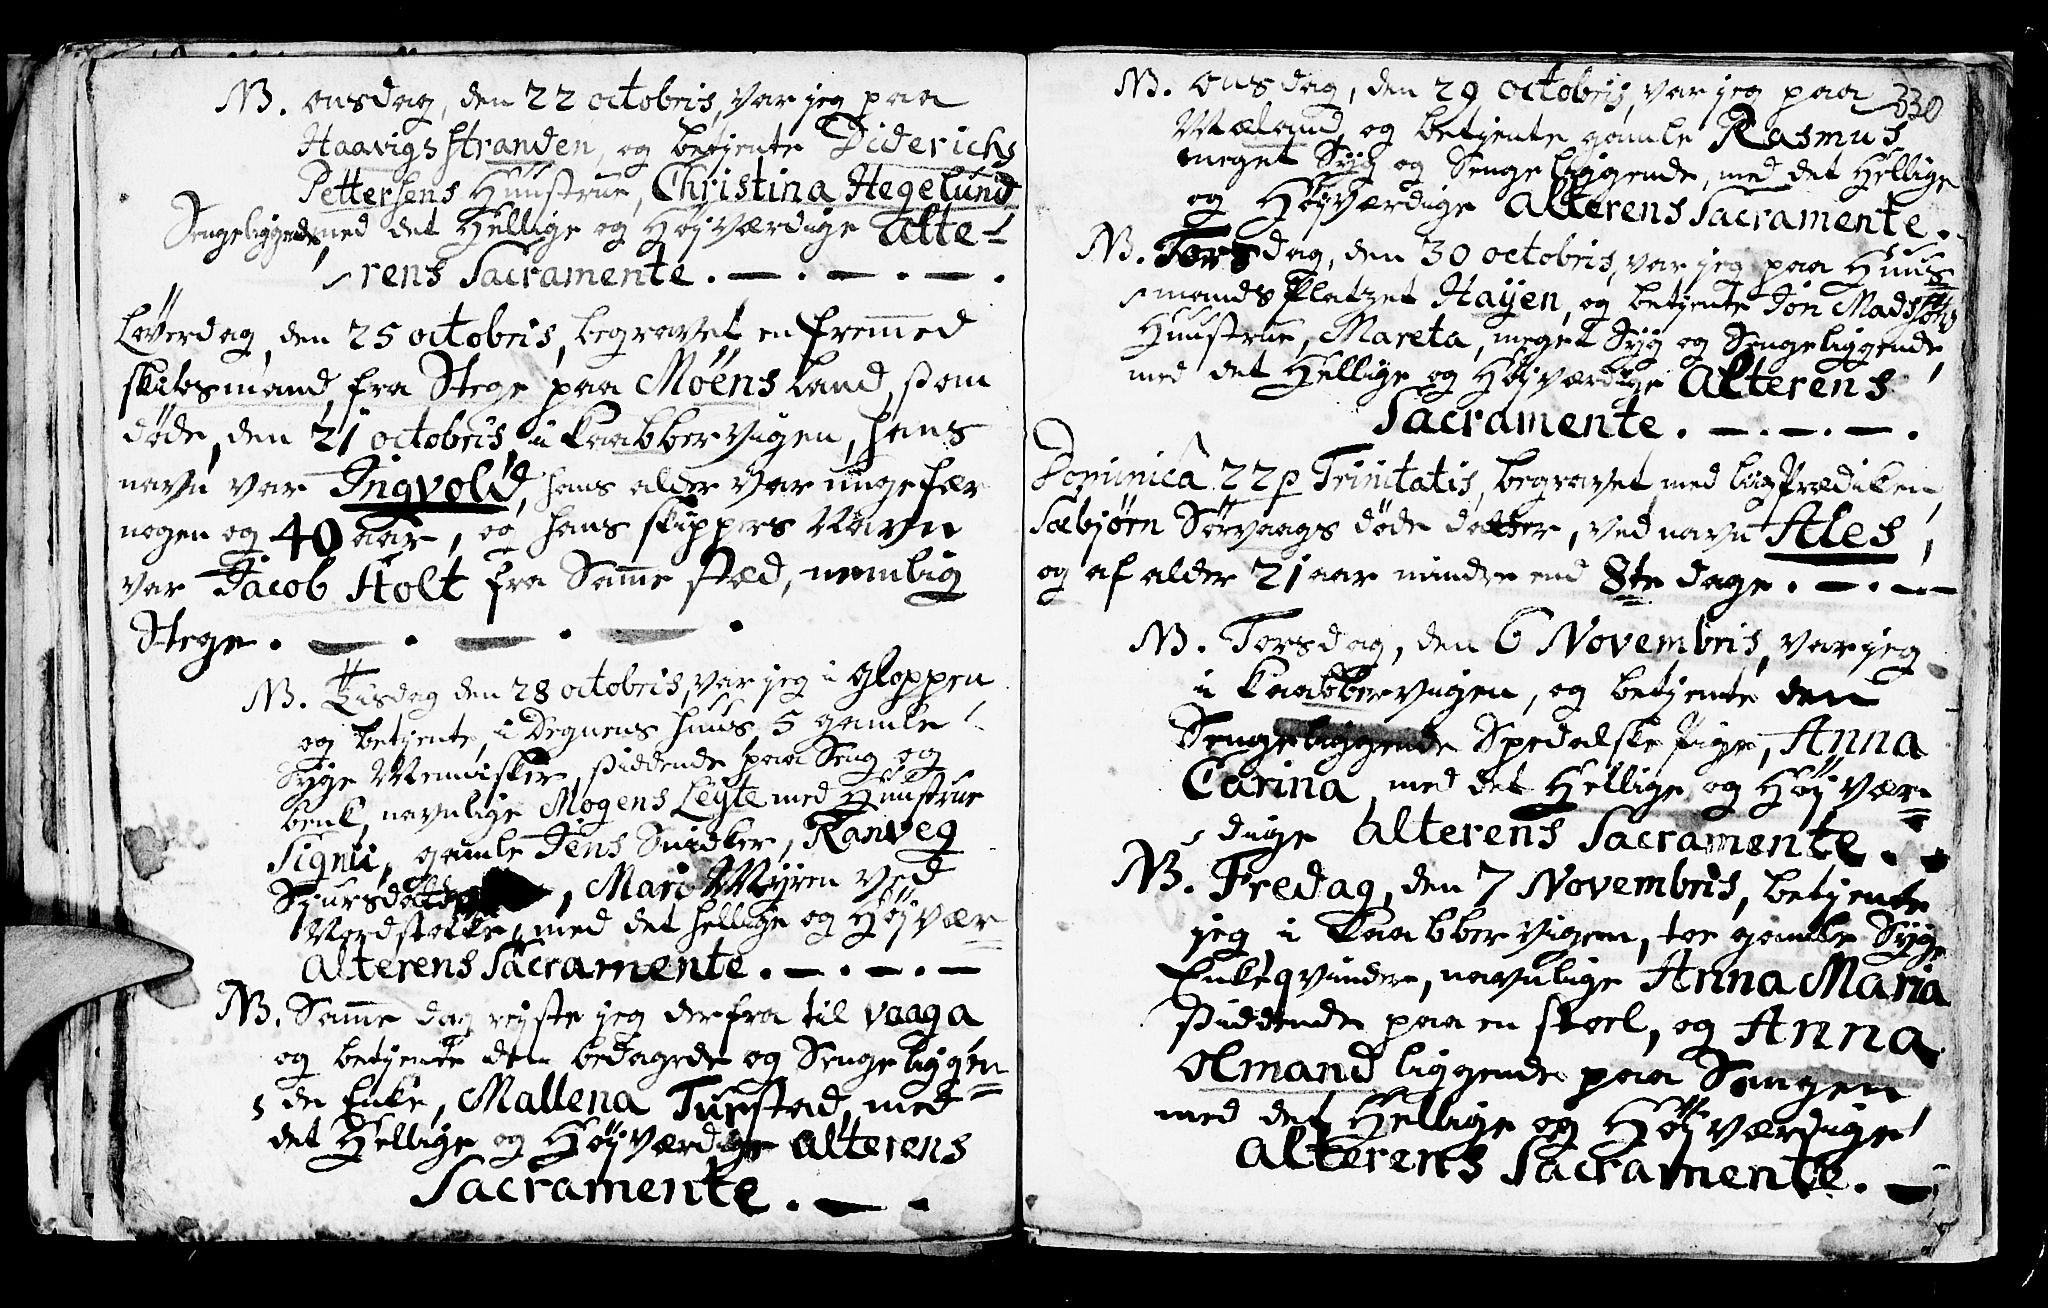 NB. onsdag, den 22 octobris, var jeg paa
Haavigs stranden, og betjente Diderichs
Pettersens Huustrue, Christina Hegelund
Sengeliggende, med det Hellige og Højværdige Alte-
rens Sacramente.
Løverdag, den 25 octobris, begravet en fremmed
skibsmand, fra Stege paa Möens Land, som
døde, den 21 octobris i Kaabbervigen, hans
navn var Ingvold, hans alder var ungefær
nogen og 40 aar, og hans skippers Navn
var Jacob Holt fra Samme stæd, nemlig
Stege.
NB. Tiisdag den 28 octobris, var jeg i Gloppen
og betjente, i Degnens huus, 5 gamle
syge Mennisker, siddende paa Seng og
benk, navnlige Mogens Leyte med Huustrue
Signii, gamle Jens Snidker, Ranveg
Siursdatter, Mari Myren ved
Nordstokke, med det hellige og Højvær
Alterens Sacramente.
NB. Samme dag rejste jeg derfra til Vaaga
og betjente den bedagede og Sengeliggen
de Enke, Mallena Turstad, med
det Hellige og Højværdige Alterens
Sacramente.
330
NB. onsdag, den 29 octobris, var jeg paa
Mæland, og betjente gamle Rasmus
meget Syg og Sengeliggende, med det Hellige
og Højværdige Alterens Sacramente.
NB. Torsdag, den 30 octobris, var jeg paa Huus
mands Platzet Haÿen, og betjente Jon Madssøns
Huustrue, Mareta, meget Syg og Sengeliggende,
med det Hellige og Højværdige Alterens
Sacramente.
Dominica 22 p Trinitatis, begravet med liigPrædiken,
Sæbjørn Sørvaags døde datter, ved navn Ales,
og af alder 21 aar mindre end 8te dage.
NB. Torsdag, den 6 Novembris, var jeg
i Kaabbervigen, og betjente den
Sengeliggende Spedalske Pige, Anna
Carina, med det Hellige og Højvær
dige Alterens Sacramente.
NB. Fredag, den 7 Novembris, betjente
jeg i Kaabbervigen, toe gamle Syge
Enkeqvinder, navnlige Anna Maria
siddende paa en stoel, og Anna
Olmand liggende paa Sengen
med det Hellige og Højværdige
Alterens Sacramente.